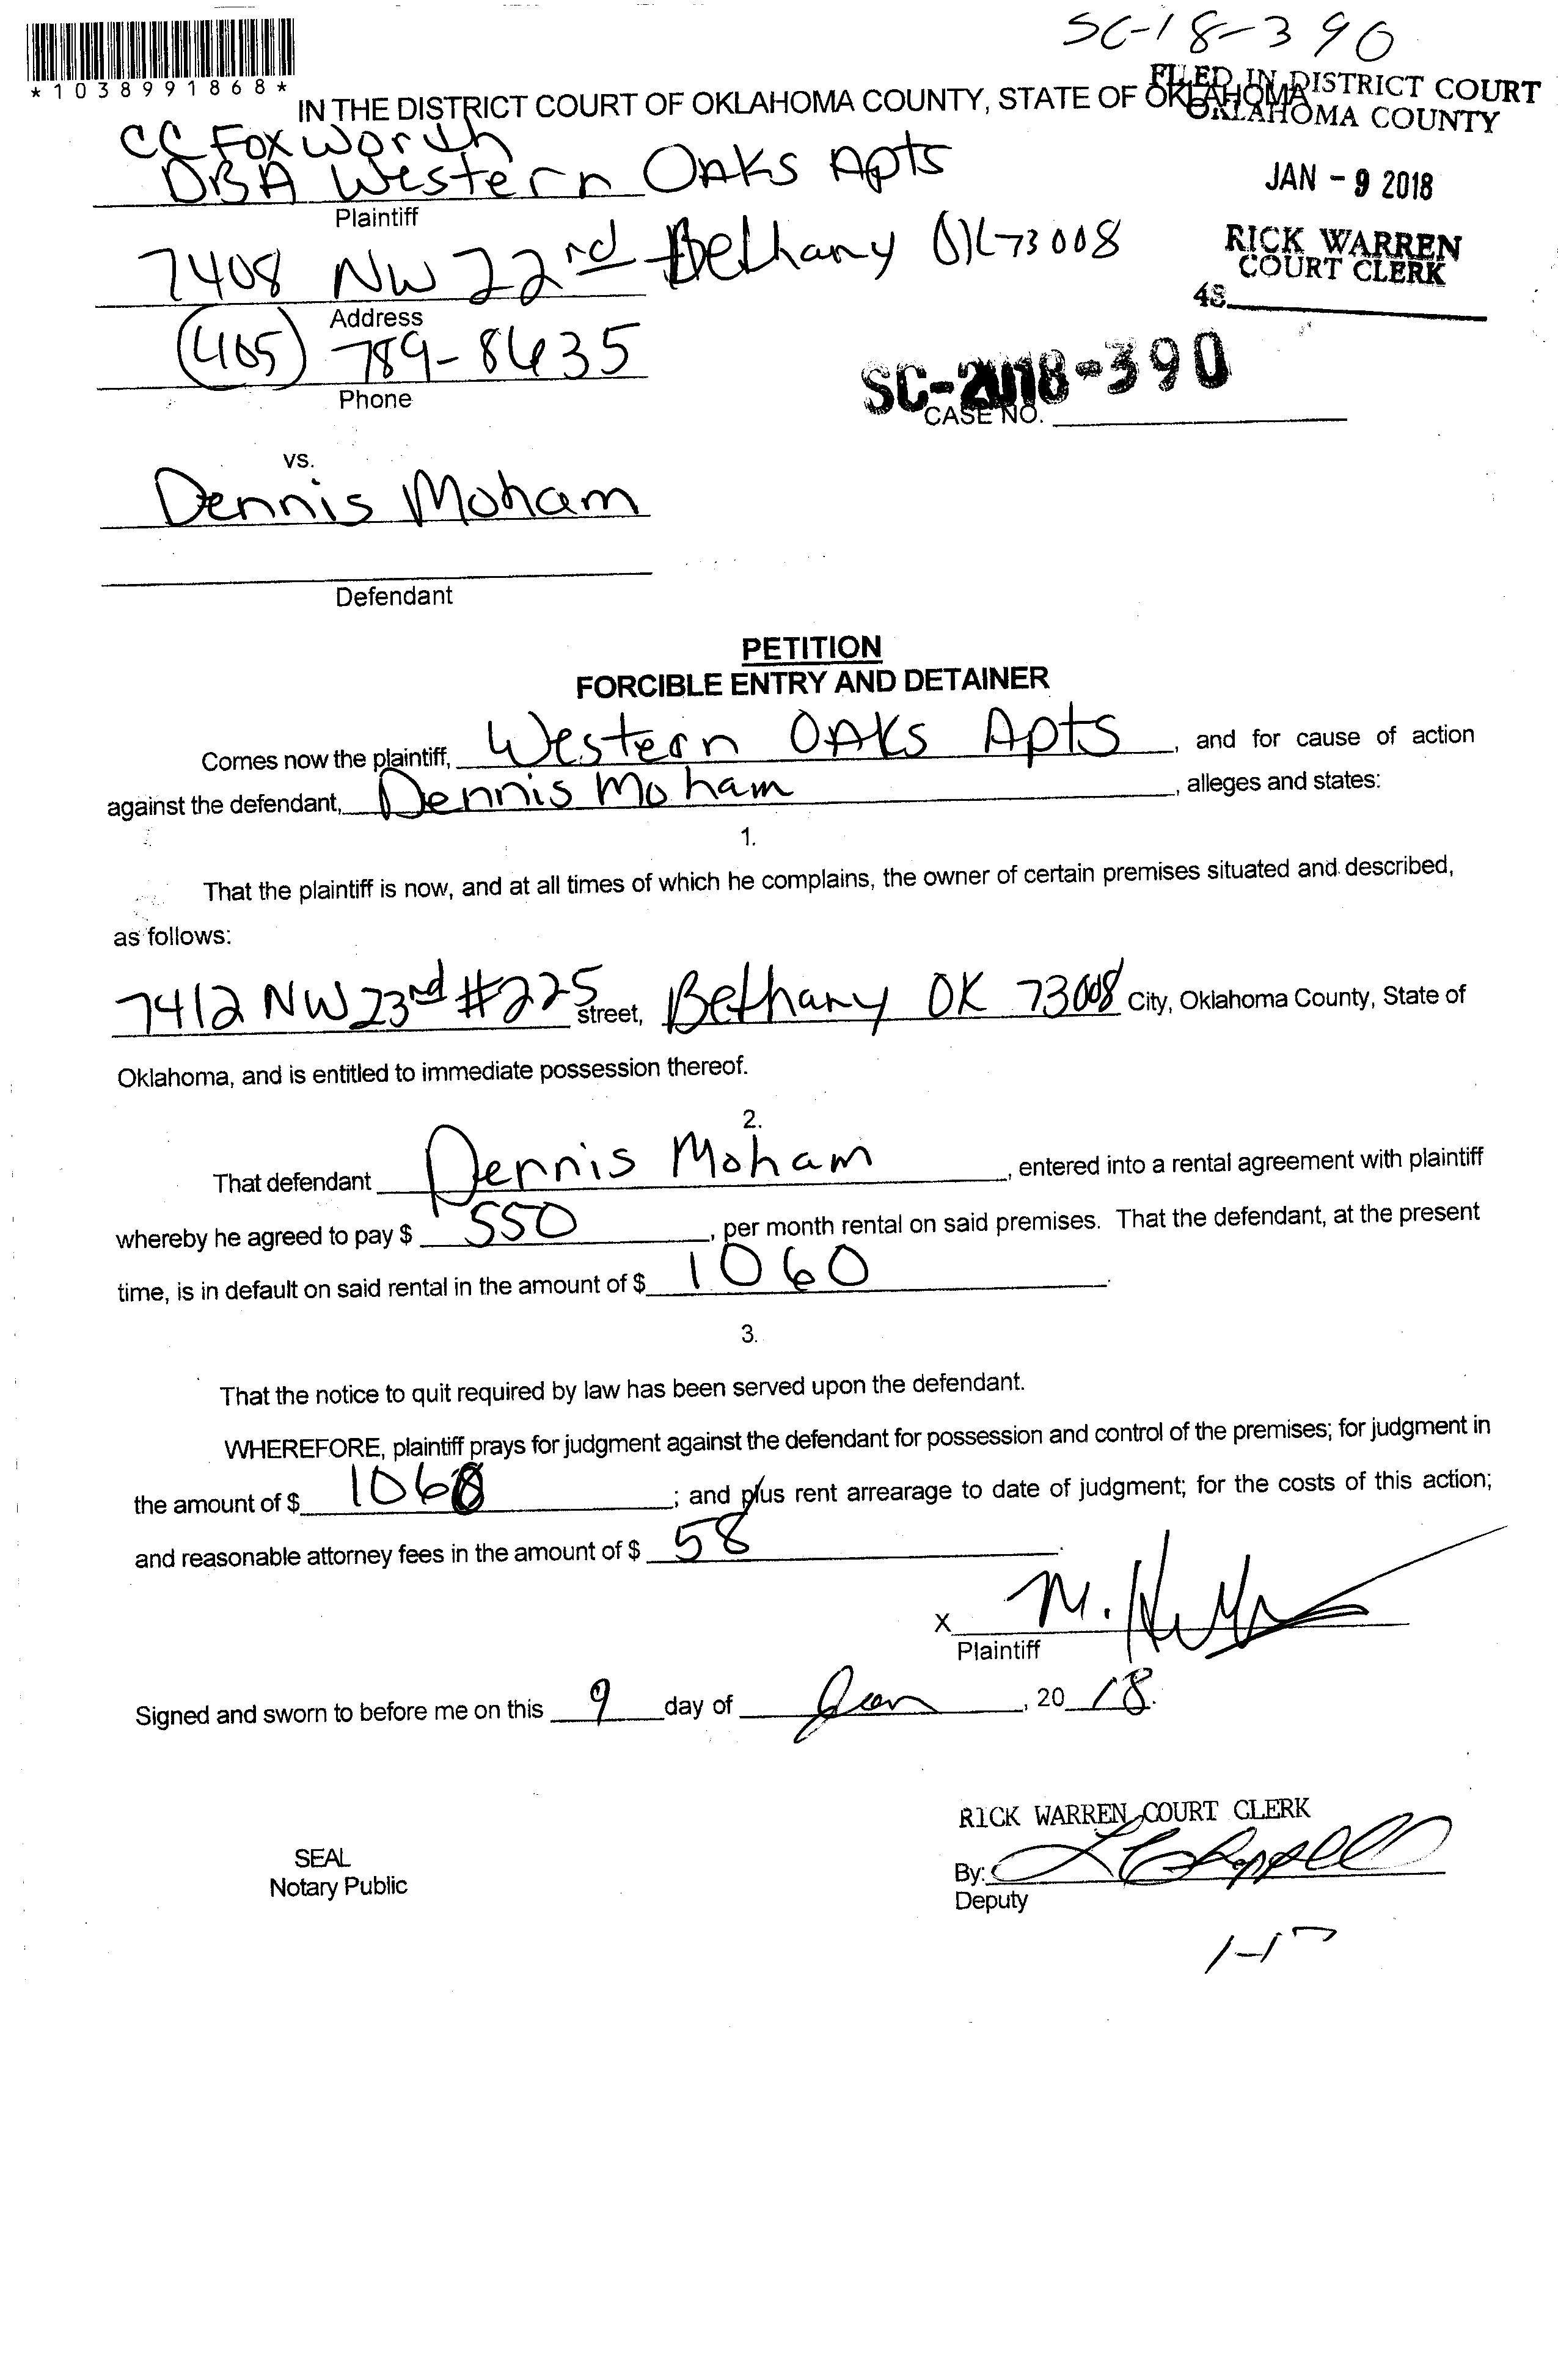 SC-18-390
*1038991868*
FILED IN DISTRICT COURT
OKLAHOMA COUNTY
IN THE DISTRICT COURT OF OKLAHOMA COUNTY, STATE OF OKLAHOMA
CC Foxworth
DBA Western Oaks Apts
JAN - 9 2018
Plaintiff
RICK WARREN
COURT CLERK
7408 NW 22nd Bethany OK 73008
48
Address
(405) 789-8635
Phone
SC-2018-390
CASE NO.
vs.
Dennis Moham
Defendant
PETITION
FORCIBLE ENTRY AND DETAINER
Comes now the plaintiff, Western Oaks Apts, and for cause of action
against the defendant, Dennis Moham, alleges and states:
1.
That the plaintiff is now, and at all times of which he complains, the owner of certain premises situated and described,
as follows:
7412 NW 23rd #225 street, Bethany OK 73008 City, Oklahoma County, State of
Oklahoma, and is entitled to immediate possession thereof.
2.
That defendant Dennis Moham, entered into a rental agreement with plaintiff
whereby he agreed to pay $ 550, per month rental on said premises. That the defendant, at the present
time, is in default on said rental in the amount of $ 1060.
3.
That the notice to quit required by law has been served upon the defendant.
WHEREFORE, plaintiff prays for judgment against the defendant for possession and control of the premises; for judgment in
the amount of $ 1060; and plus rent arrearage to date of judgment; for the costs of this action;
and reasonable attorney fees in the amount of $ 58.
X M.
Plaintiff
Signed and sworn to before me on this 9 day of Jan, 2018.
RICK WARREN COURT CLERK
SEAL
Notary Public
By:
Deputy
1-17